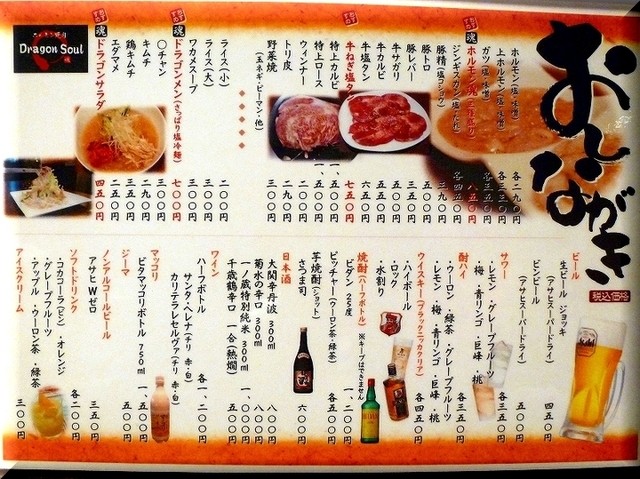 おしながき
税込価格
ホルモン（塩・味噌） 各二九〇円
上ホルモン（塩・味噌） 各三五〇円
ガツ（塩・味噌） 各三五〇円
魂 ホルモン魂（三種盛り） 八五〇円
ジンギスカン（塩・たれ） 各四五〇円
豚精（塩コショウ） 三五〇円
豚トロ 五〇〇円
豚レバー 三〇〇円
牛サガリ 五五〇円
牛カルビ 五五〇円
牛塩タン 六五〇円
牛ねぎ塩タン 七五〇円
特上カルビ 一、五〇〇円
特上ロース 一、五〇〇円
ウィンナー 二〇〇円
トリ皮 二九〇円
野菜焼 三〇〇円
（玉ネギ・ピーマン・他）
ライス（小） 二〇〇円
ライス（大） 三〇〇円
ワカメスープ 三〇〇円
魂 ドラゴンメン（さっぱり塩冷麺） 七〇〇円
〇チャン 三〇〇円
キムチ 二九〇円
鶏キムチ 三五〇円
エダマメ 二五〇円
魂 ドラゴンサラダ 四五〇円
Dragon Soul
ビール
生ビール ジョッキ 四五〇円
（アサヒスーパードライ）
ビンビール 五五〇円
（アサヒスーパードライ）
サワー 各三五〇円
・レモン・グレープフルーツ
・梅・青リンゴ・巨峰・桃
酎ハイ 各三五〇円
・ウーロン・緑茶・グレープフルーツ
・レモン・梅・青リンゴ・巨峰・桃
ウイスキー（ブラックニッカクリア） 各四五〇円
・ハイボール
・ロック
・水割り
焼酎（ハーフボトル） ※キープはできません
ビダン 25度 一、二〇〇円
ピッチャー（ウーロン茶・緑茶） 各五〇〇円
芋焼酎（ショット）
さつま司 六〇〇円
日本酒
大関辛丹波 300ml 八〇〇円
菊水の辛口 300ml 八〇〇円
一ノ蔵特別純米 300ml 一、〇〇〇円
千歳鶴辛口 一合（熱燗） 五〇〇円
ワイン
ハーフボトル 各一、二〇〇円
サンタ・ヘレナ（チリ 赤・白）
カリテラレセルヴァ（チリ 赤・白）
マッコリ
ビタマッコリボトル 750ml 一、五〇〇円
ジーマ 五〇〇円
ノンアルコールビール
アサヒ Wゼロ 三五〇円
ソフトドリンク 各二〇〇円
・コカコーラ（ビン）・オレンジ
・グレープフルーツ
・アップル・ウーロン茶・緑茶
アイスクリーム 三〇〇円